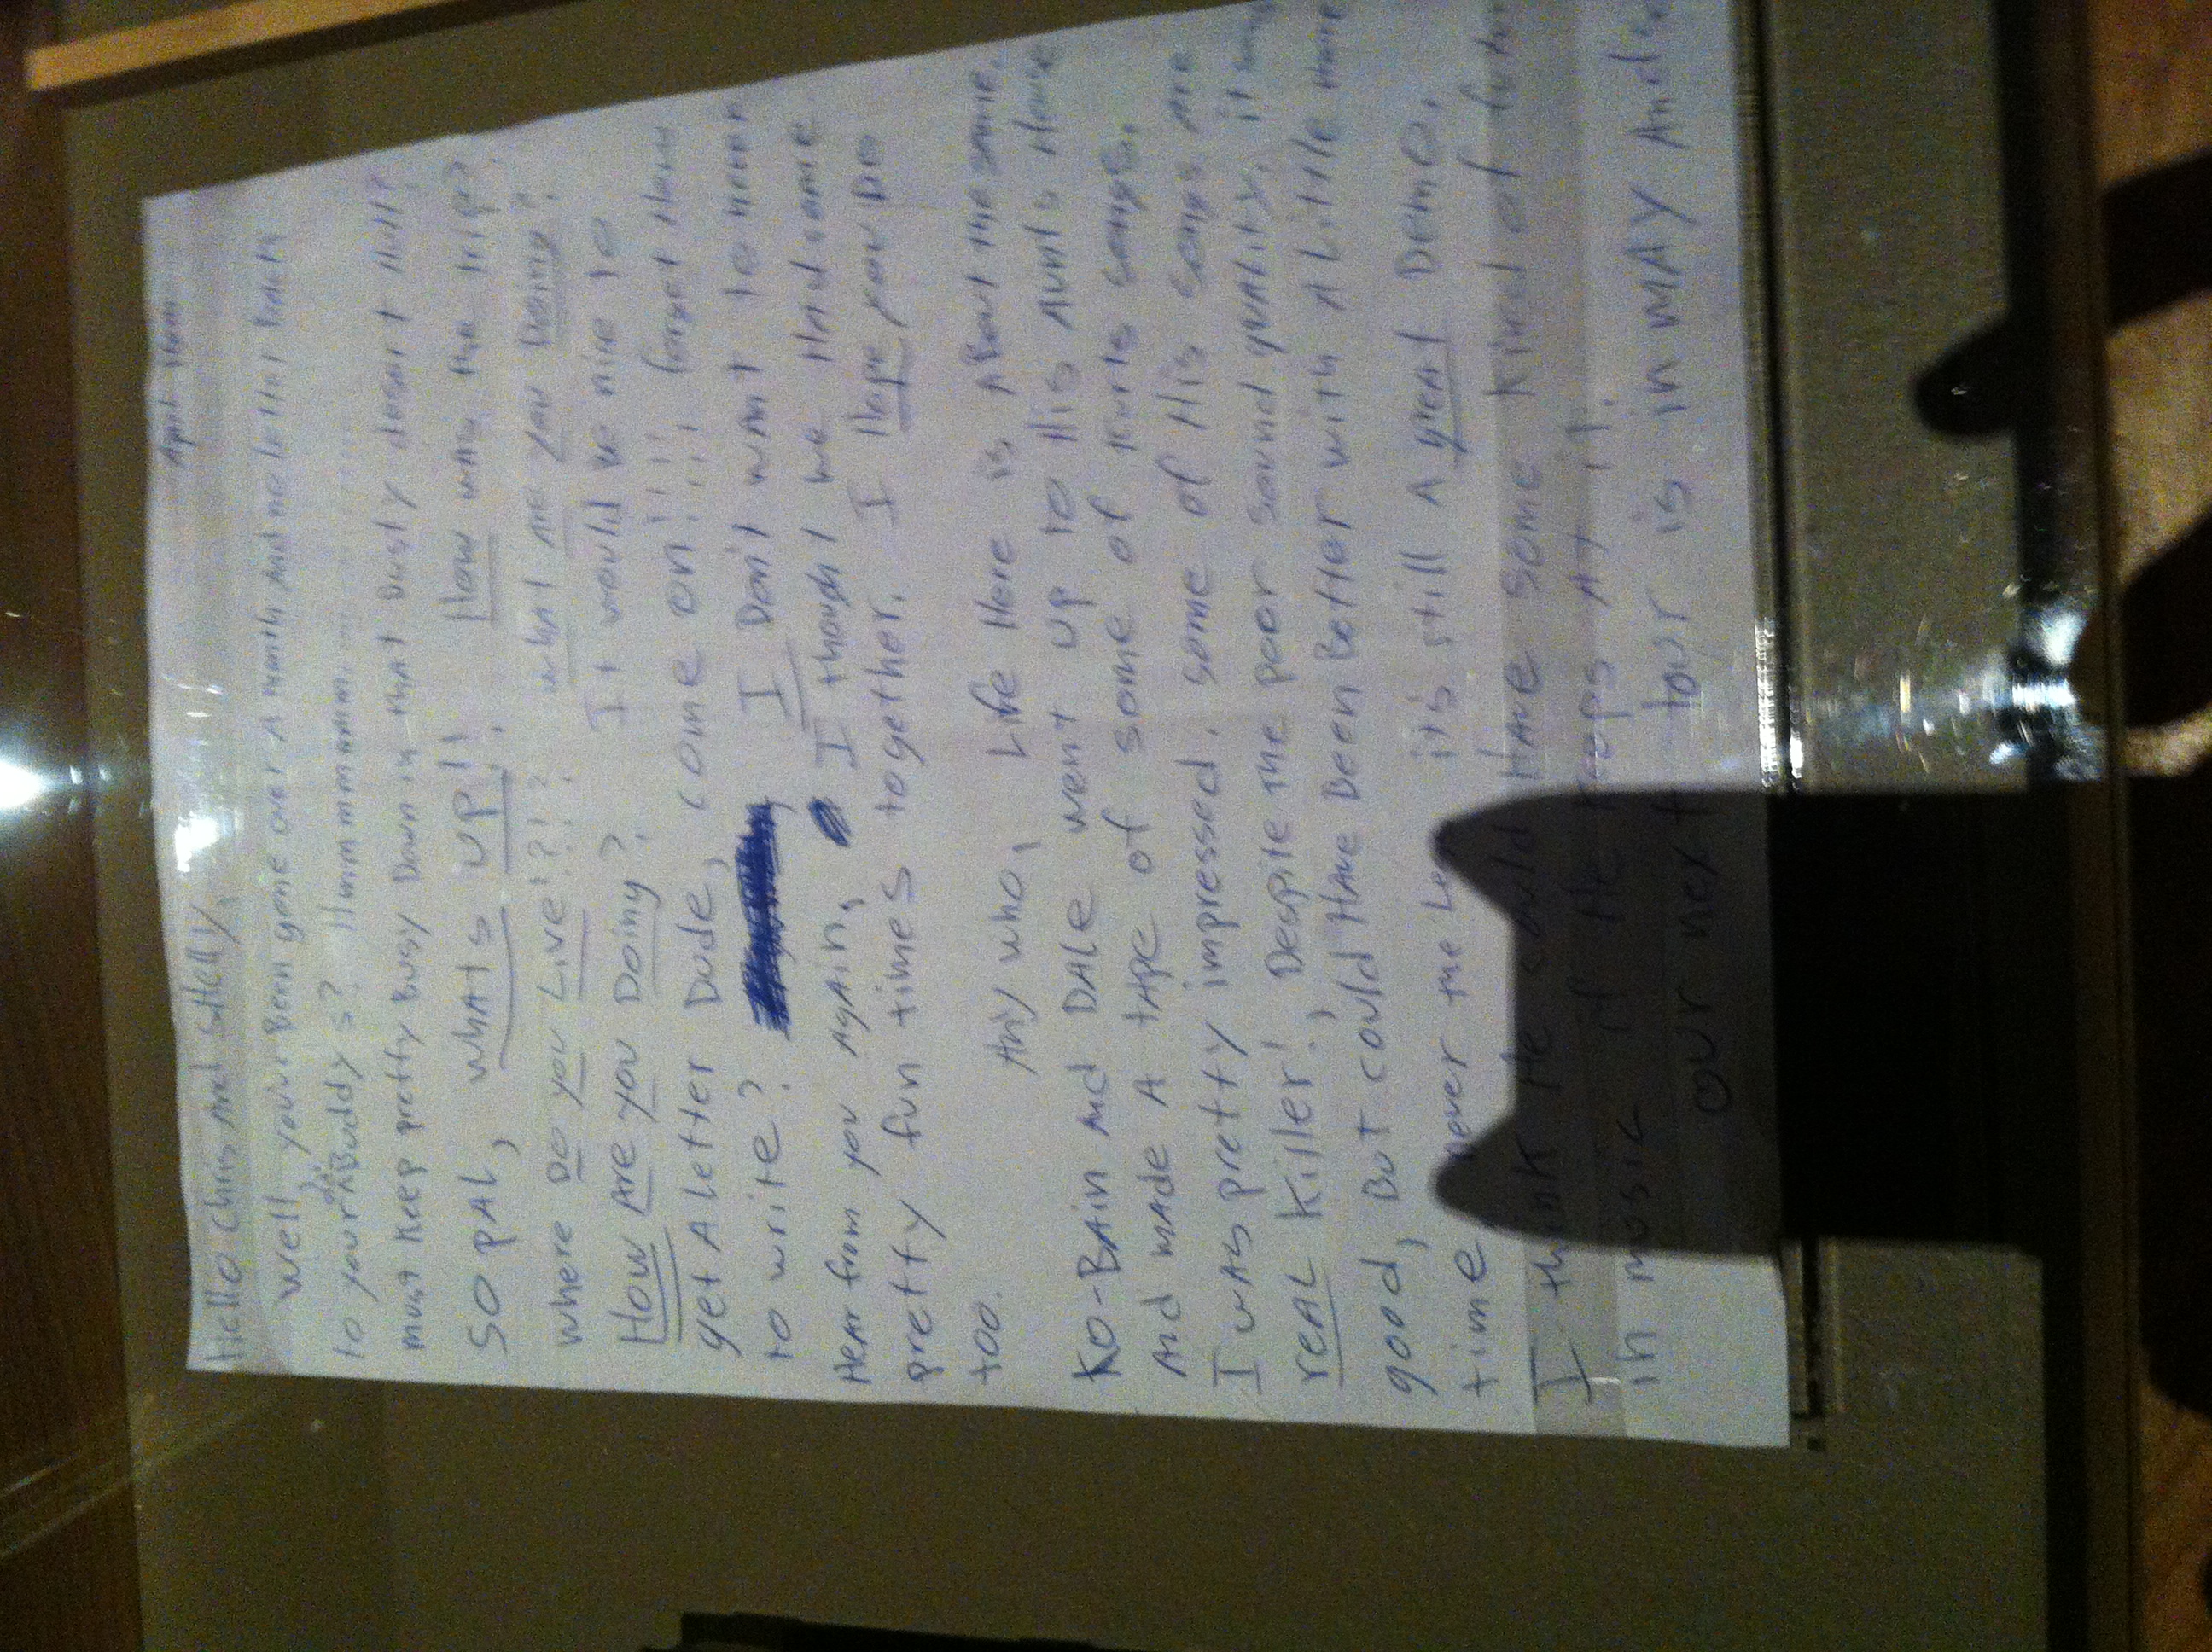 April
Hello Chris And SHelly,
Well, your Been gone over A month And not A
to your ol' Buddy s? Hmmmmmmm.......
must keep pretty Busy Down in that Dusty desert Huh?
So PAL, whats up!! How was the trip?
where Do you Live!?!?! what Are you Doing?
How Are you Doing? It would be nice to
get A letter Dude, come on!!!! forget How
to write? I Don't want to never
Hear from you Again, I thought we Had some
pretty fun times together. I Hope you Do
too.
Any who, Life Here is About the same.
Ko-BAin And DALe went up to His Aunts House
And made A tape of some of Kurts songs.
I was pretty impressed. some of His songs Are
reAL Killer! Despite the poor sound quality, it was
good, But could HAve Been Better with A Little more
time never the it's still A greAt Demo.
I think He could HAve some Kind of
in music if He Keeps At it.
our next tour is in MAy And